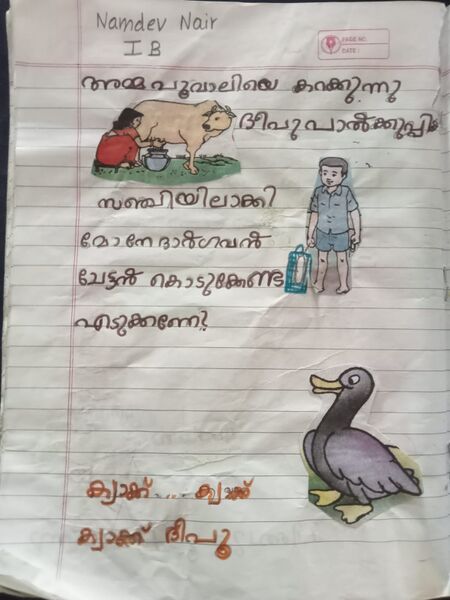 Namdev Nair
I B
PAGE NO.
DATE:
അമ്മ പൂവാലിയെ കറക്കുന്നു
ദീപു പാൽക്കുപ്പി
സഞ്ചിയിലാക്കി
മോനേ ഭാർഗവൻ
ചേട്ടൻ കൊടുക്കേണ്ട
എടുക്കണേ?
ക്വാക്ക് .... ക്വാക്ക്
ക്വാക്ക് ദീപു